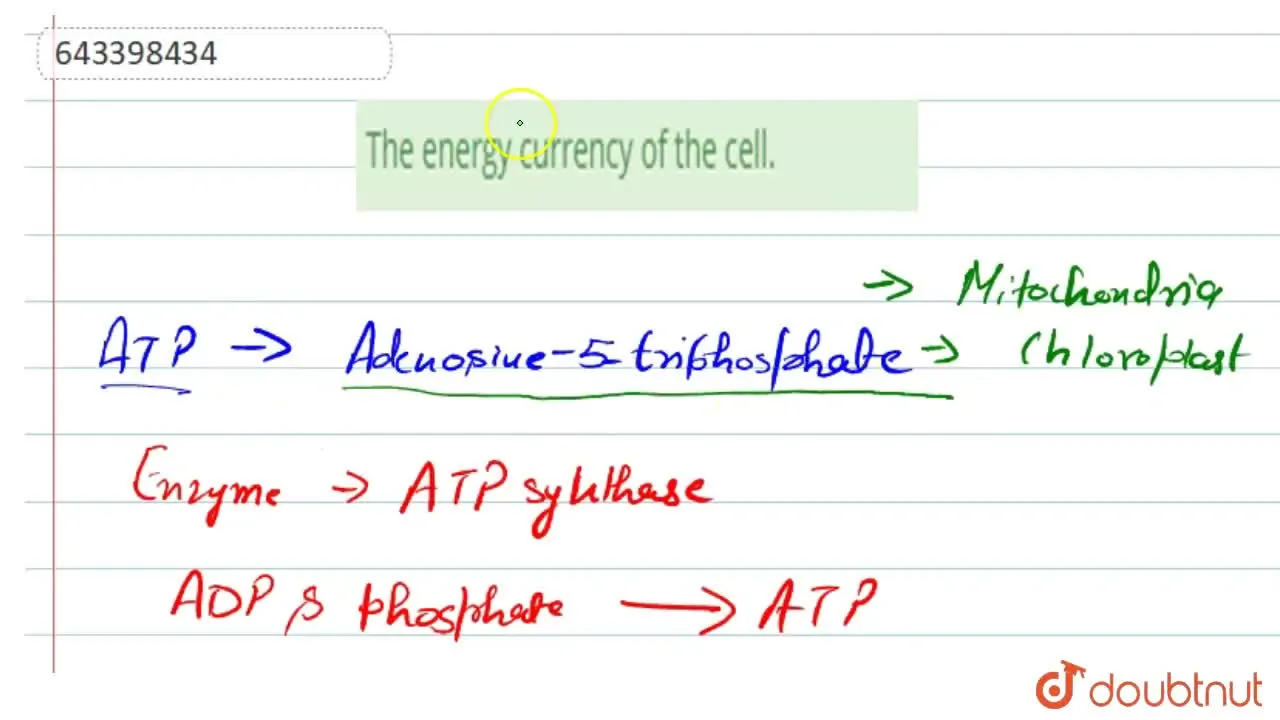 643398434
The energy currency of the cell.
→ Mitochondria
ATP → Adenosine-5-triphosphate → Chloroplast
Enzyme → ATP synthase
ADP & phosphate → ATP
doubtnut